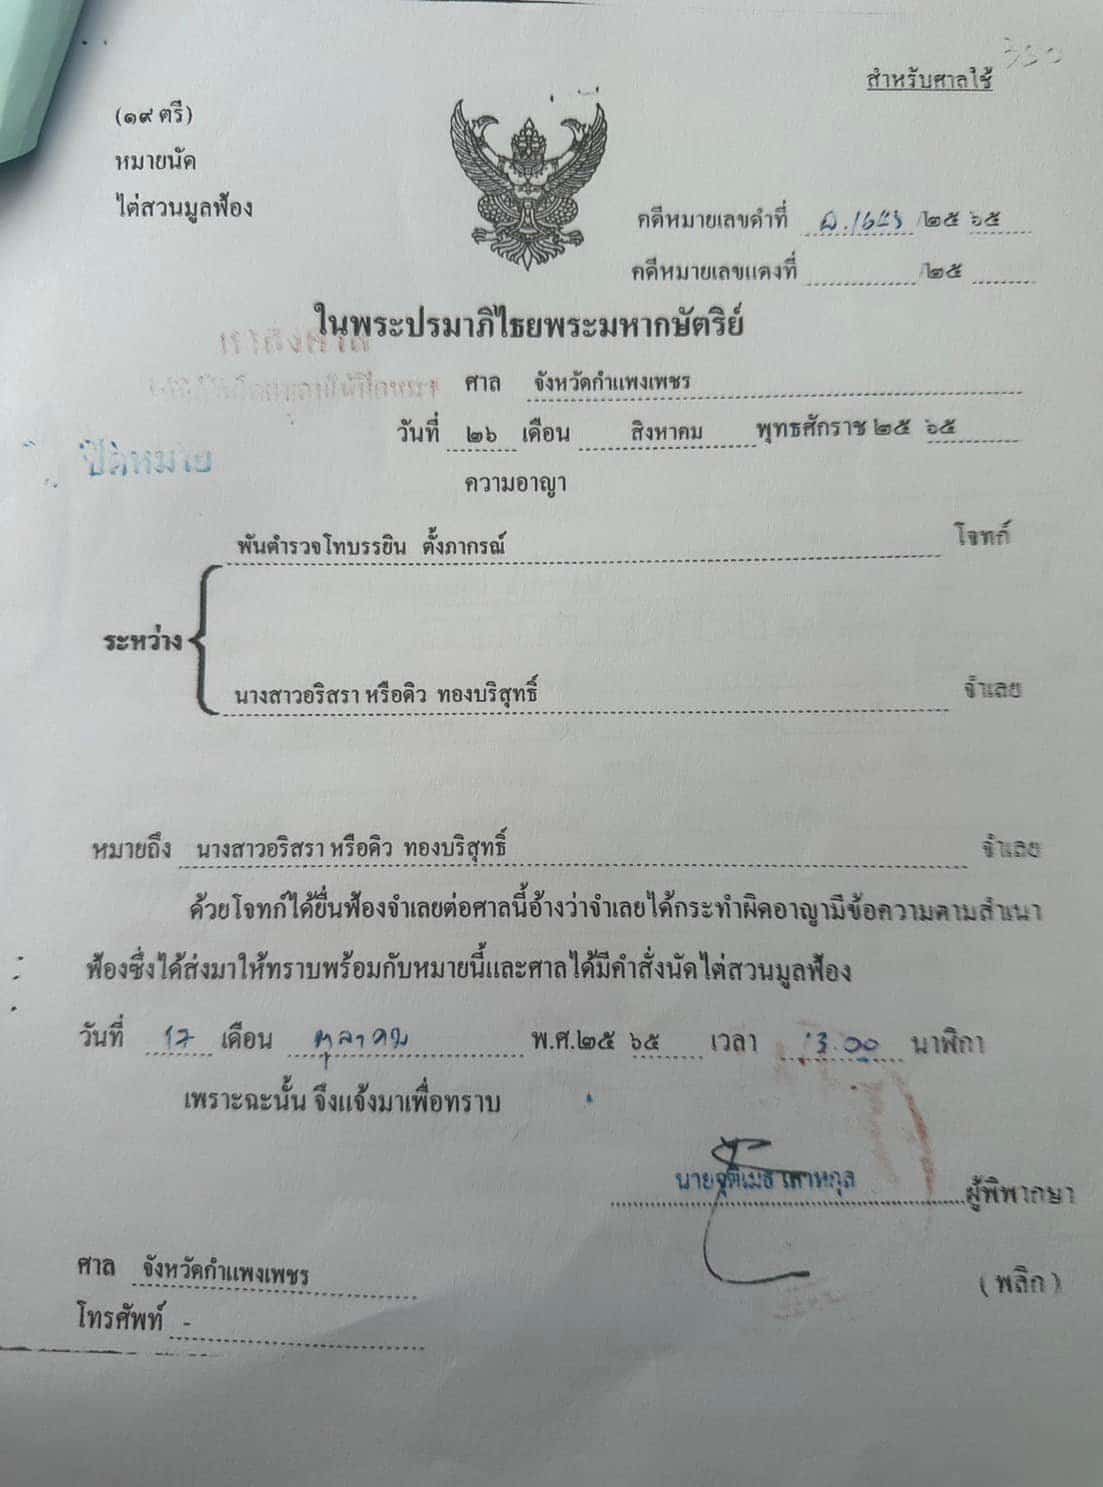 สำหรับศาลใช้
(๑๙ ตรี)
หมายนัด
ไต่สวนมูลฟ้อง
คดีหมายเลขดำที่ /๒๕ ๖๕
คดีหมายเลขแดงที่ /๒๕
ในพระปรมาภิไธยพระมหากษัตริย์
ศาล จังหวัดกำแพงเพชร
วันที่ ๒๖ เดือน สิงหาคม พุทธศักราช ๒๕ ๖๕
ปิดหมาย
ความอาญา
พันตำรวจโทบรรยิน ตั้งภากรณ์ โจทก์
ระหว่าง
นางสาวอริสรา หรือดิว ทองบริสุทธิ์ จำเลย
หมายถึง นางสาวอริสรา หรือดิว ทองบริสุทธิ์ จำเลย
ด้วยโจทก์ได้ยื่นฟ้องจำเลยต่อศาลนี้อ้างว่าจำเลยได้กระทำผิดอาญามีข้อความตามสำเนา
ฟ้องซึ่งได้ส่งมาให้ทราบพร้อมกับหมายนี้และศาลได้มีคำสั่งนัดไต่สวนมูลฟ้อง
วันที่ 17 เดือน ตุลาคม พ.ศ.๒๕ ๖๕ เวลา 13.00 นาฬิกา
เพราะฉะนั้น จึงแจ้งมาเพื่อทราบ
ผู้พิพากษา
ศาล จังหวัดกำแพงเพชร
(พลิก)
โทรศัพท์ -